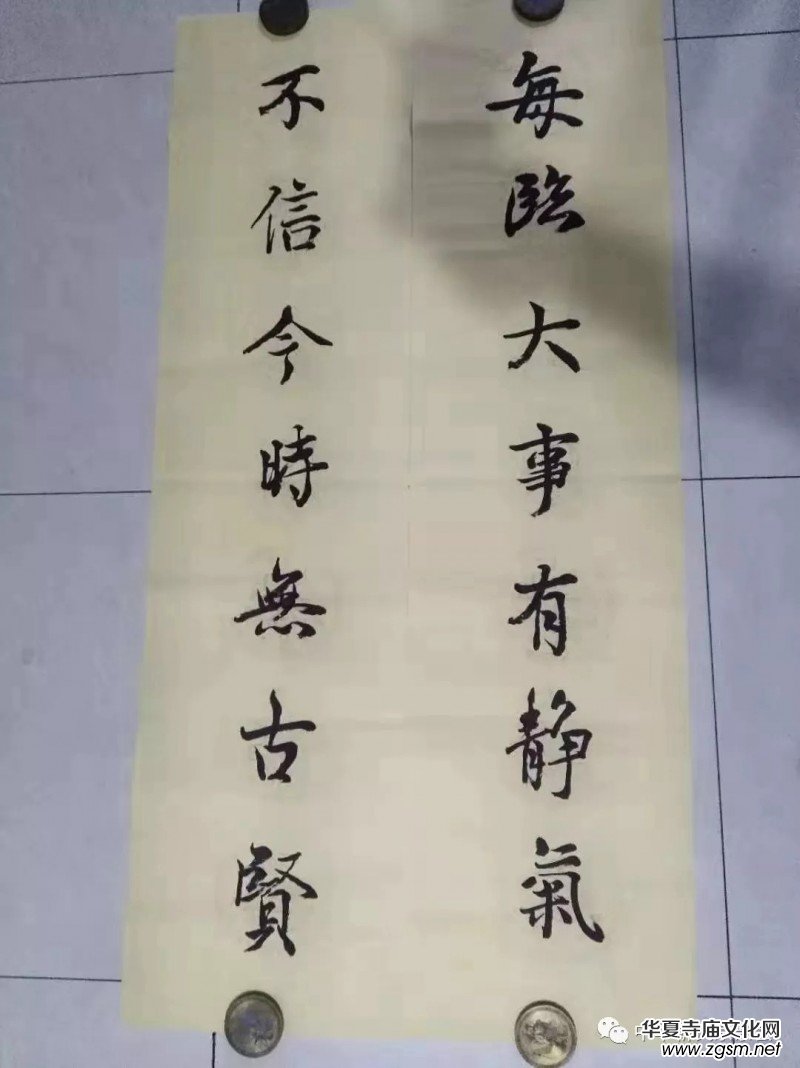 每臨大事有静氣
不信今時無古賢
华夏寺庙文化网
www.zgsm.net